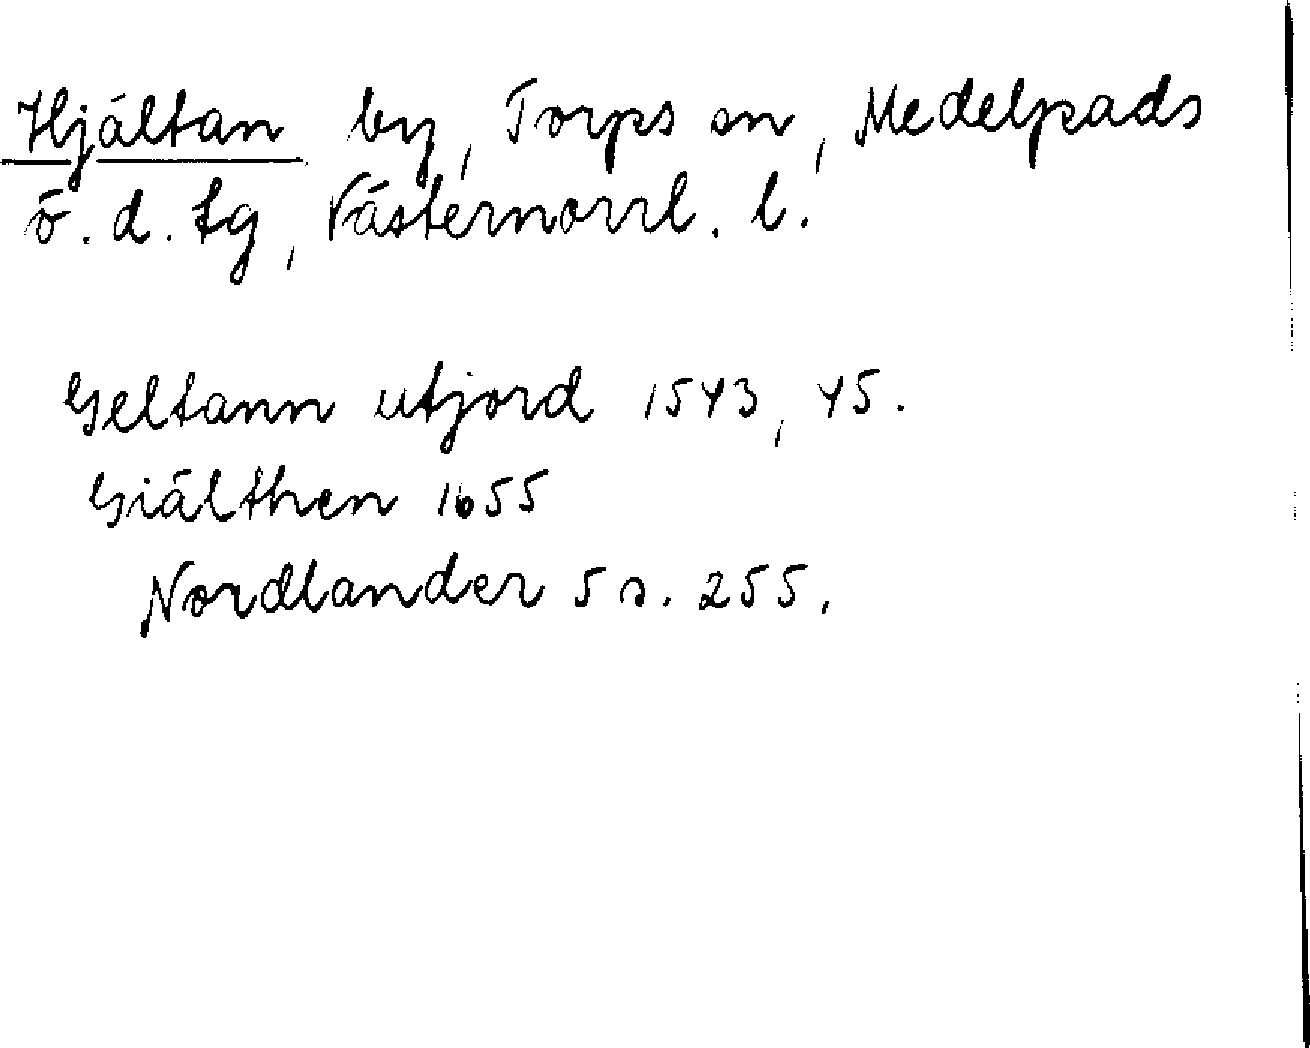 Hjältan by, Torps sn, Medelpads
ö. d. tg, Västernorrl. l.
Geltann utjord 1543, 45.
Giälthen 1655
Nordlander 5 s. 255.